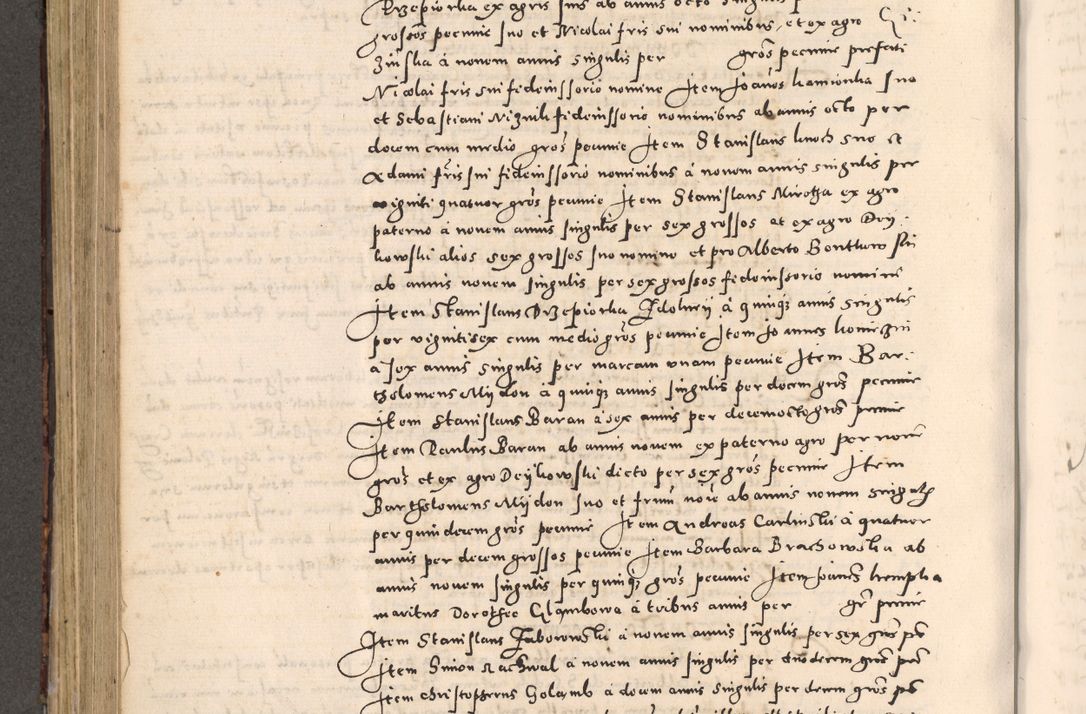 Drzepiorka ex agris suis ab annis octo singulis
grossos pecunie suo et Nicolai fris sui nominibus, et ex agro
Zinska à novem annis singulis per gros pecunie prefati
Nicolai fris sui fideiussorio nomine Item Joanes kamionka suo
et Sebastiani fideiussorio nominibus ab annis octo per
decem cum medio gros pecunie Item Stanislaus knoch suo et
Adami fris sui fideiussorio nominibus à novem annis singulis per
viginti quatuor gros pecunie Item Stanislaus Mirotha ex agro
paterno à novem annis singulis per sex grossos et ex agro Dey
kowski alios sex grossos suo nomine et pro Alberto
ab annis novem singulis per sex grossos fideiussorio nomine
Item Stanislaus Drzepiorka à quinq annis singulis
per viginti sex cum medio gros pecunie Item Joannes
à sex annis singulis per marcam unam pecunie Item Bar
tholomeus Mydon à quinq annis singulis per decem gros pecunie
Item Stanislaus Baran à sex annis per decemocto gros pecunie
Item Paulus Baran ab annis novem ex paterno agro per novem
gros et ex agro Deykowski dicto per sex gros pecunie Item
Bartholomeus Mydon suo et noie ab annis novem singulis
per quindecem gros pecunie Item Andreas Carlinski à quatuor
annis per decem grossos pecunie Item Barbara Brachowska ab
annis novem singulis per quinq gros pecunie Item Joanes krempka
maritus Dorothee Glambowa à tribus annis per gr pecunie
Item Stanislaus Zaborowski à novem annis singulis per sex gros pec
Item Simon Rachwal à novem annis singulis per duodecem gros pec
Item Christopherus Golamb à decem annis singulis per decem gros pec